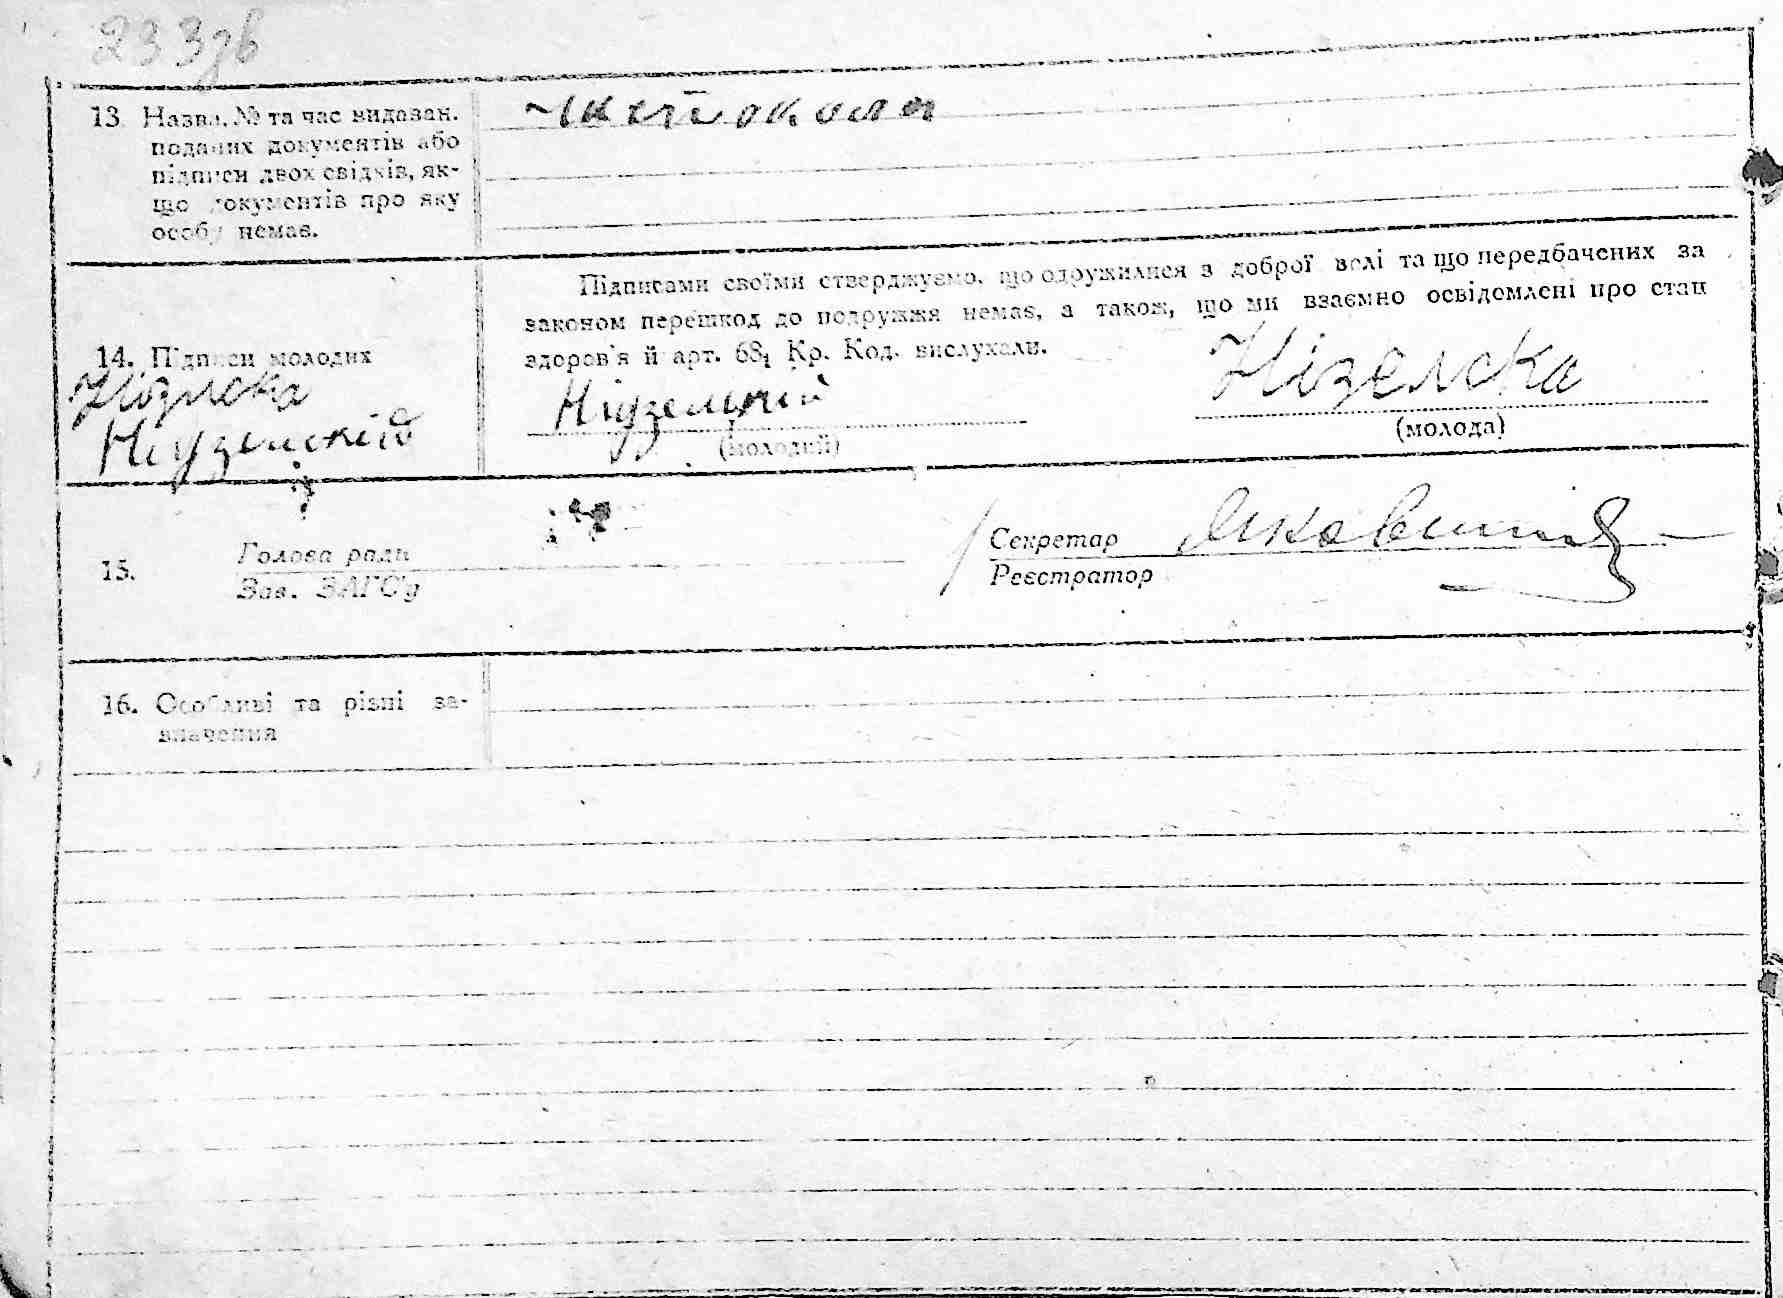 233зв
13. Назва, № та час видаван.
поданих документів або
підписи двох свідків, як-
що документів про яку
особу немає.
14. Підписи молодих
Підписами своїми стверджуємо, що одружилися з доброї волі та що передбачених за
законом перешкод до подружжя немає, а також, що ми взаємно освідомлені про стан
здоров'я й арт. 68₁ Кр. Код. вислухали.
Нізелска
(молодий)
(молода)
15.
Голова ради
Зав. ЗАГС'у
Секретар
Реєстратор
16. Особливі та різні за-
значення